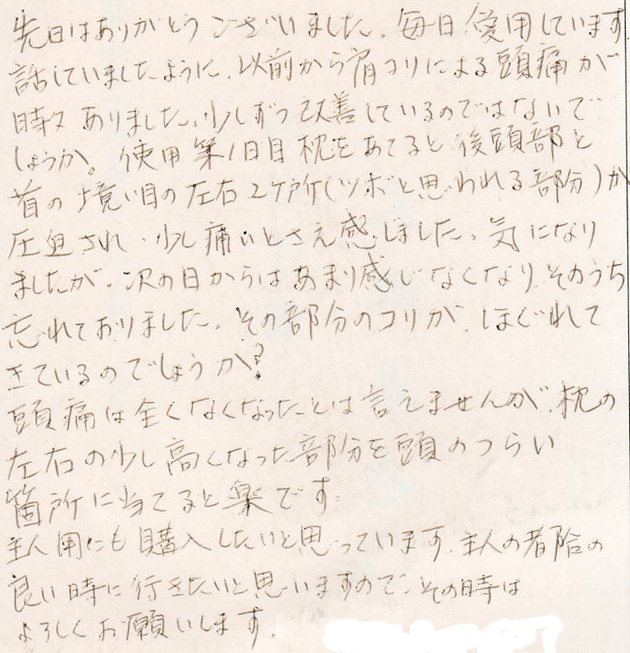 先日はありがとうございました。毎日使用しています
話していましたように、以前から肩コリによる頭痛が
時々ありました。少しずつ改善しているのではないで
しょうか。使用第1日目枕をあてると後頭部と
首の境い目の左右2ケ所(ツボと思われる部分)が
圧迫され、少し痛いとさえ感じました。気になり
ましたが、次の日からはあまり感じなくなり、そのうち
忘れておりました。その部分のコリが、ほぐれて
きているのでしょうか?
頭痛は全くなくなったとは言えませんが、枕の
左右の少し高くなった部分を頭のつらい
箇所に当てると楽です。
主人用にも購入したいと思っています。主人の都合の
良い時に行きたいと思いますので、その時は
よろしくお願いします。